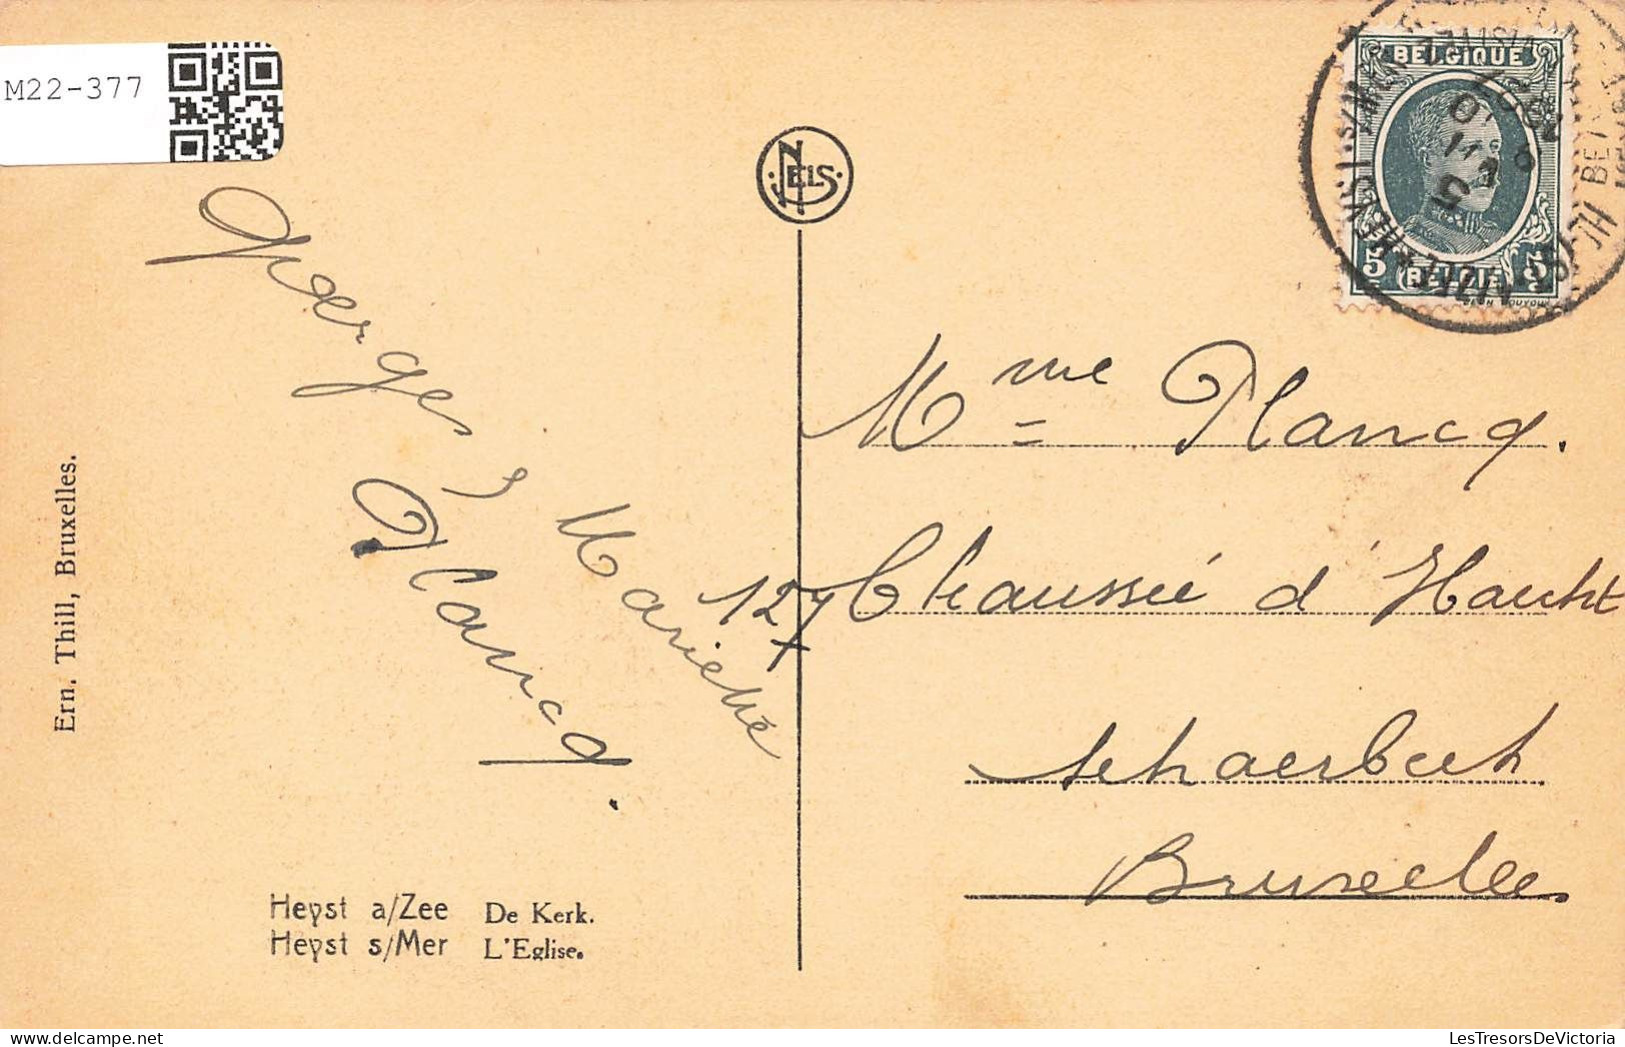 M22-377
NELS
BELGIQUE
5 BELGIE 5
Georges,
Mariette
Plancq.
Mme Plancq.
127 Chaussée d'Haecht
Schaerbeek
Bruxelles
Ern. Thill, Bruxelles.
Heyst a/Zee De Kerk.
Heyst s/Mer L'Eglise.
LesTresorsDeVictoria